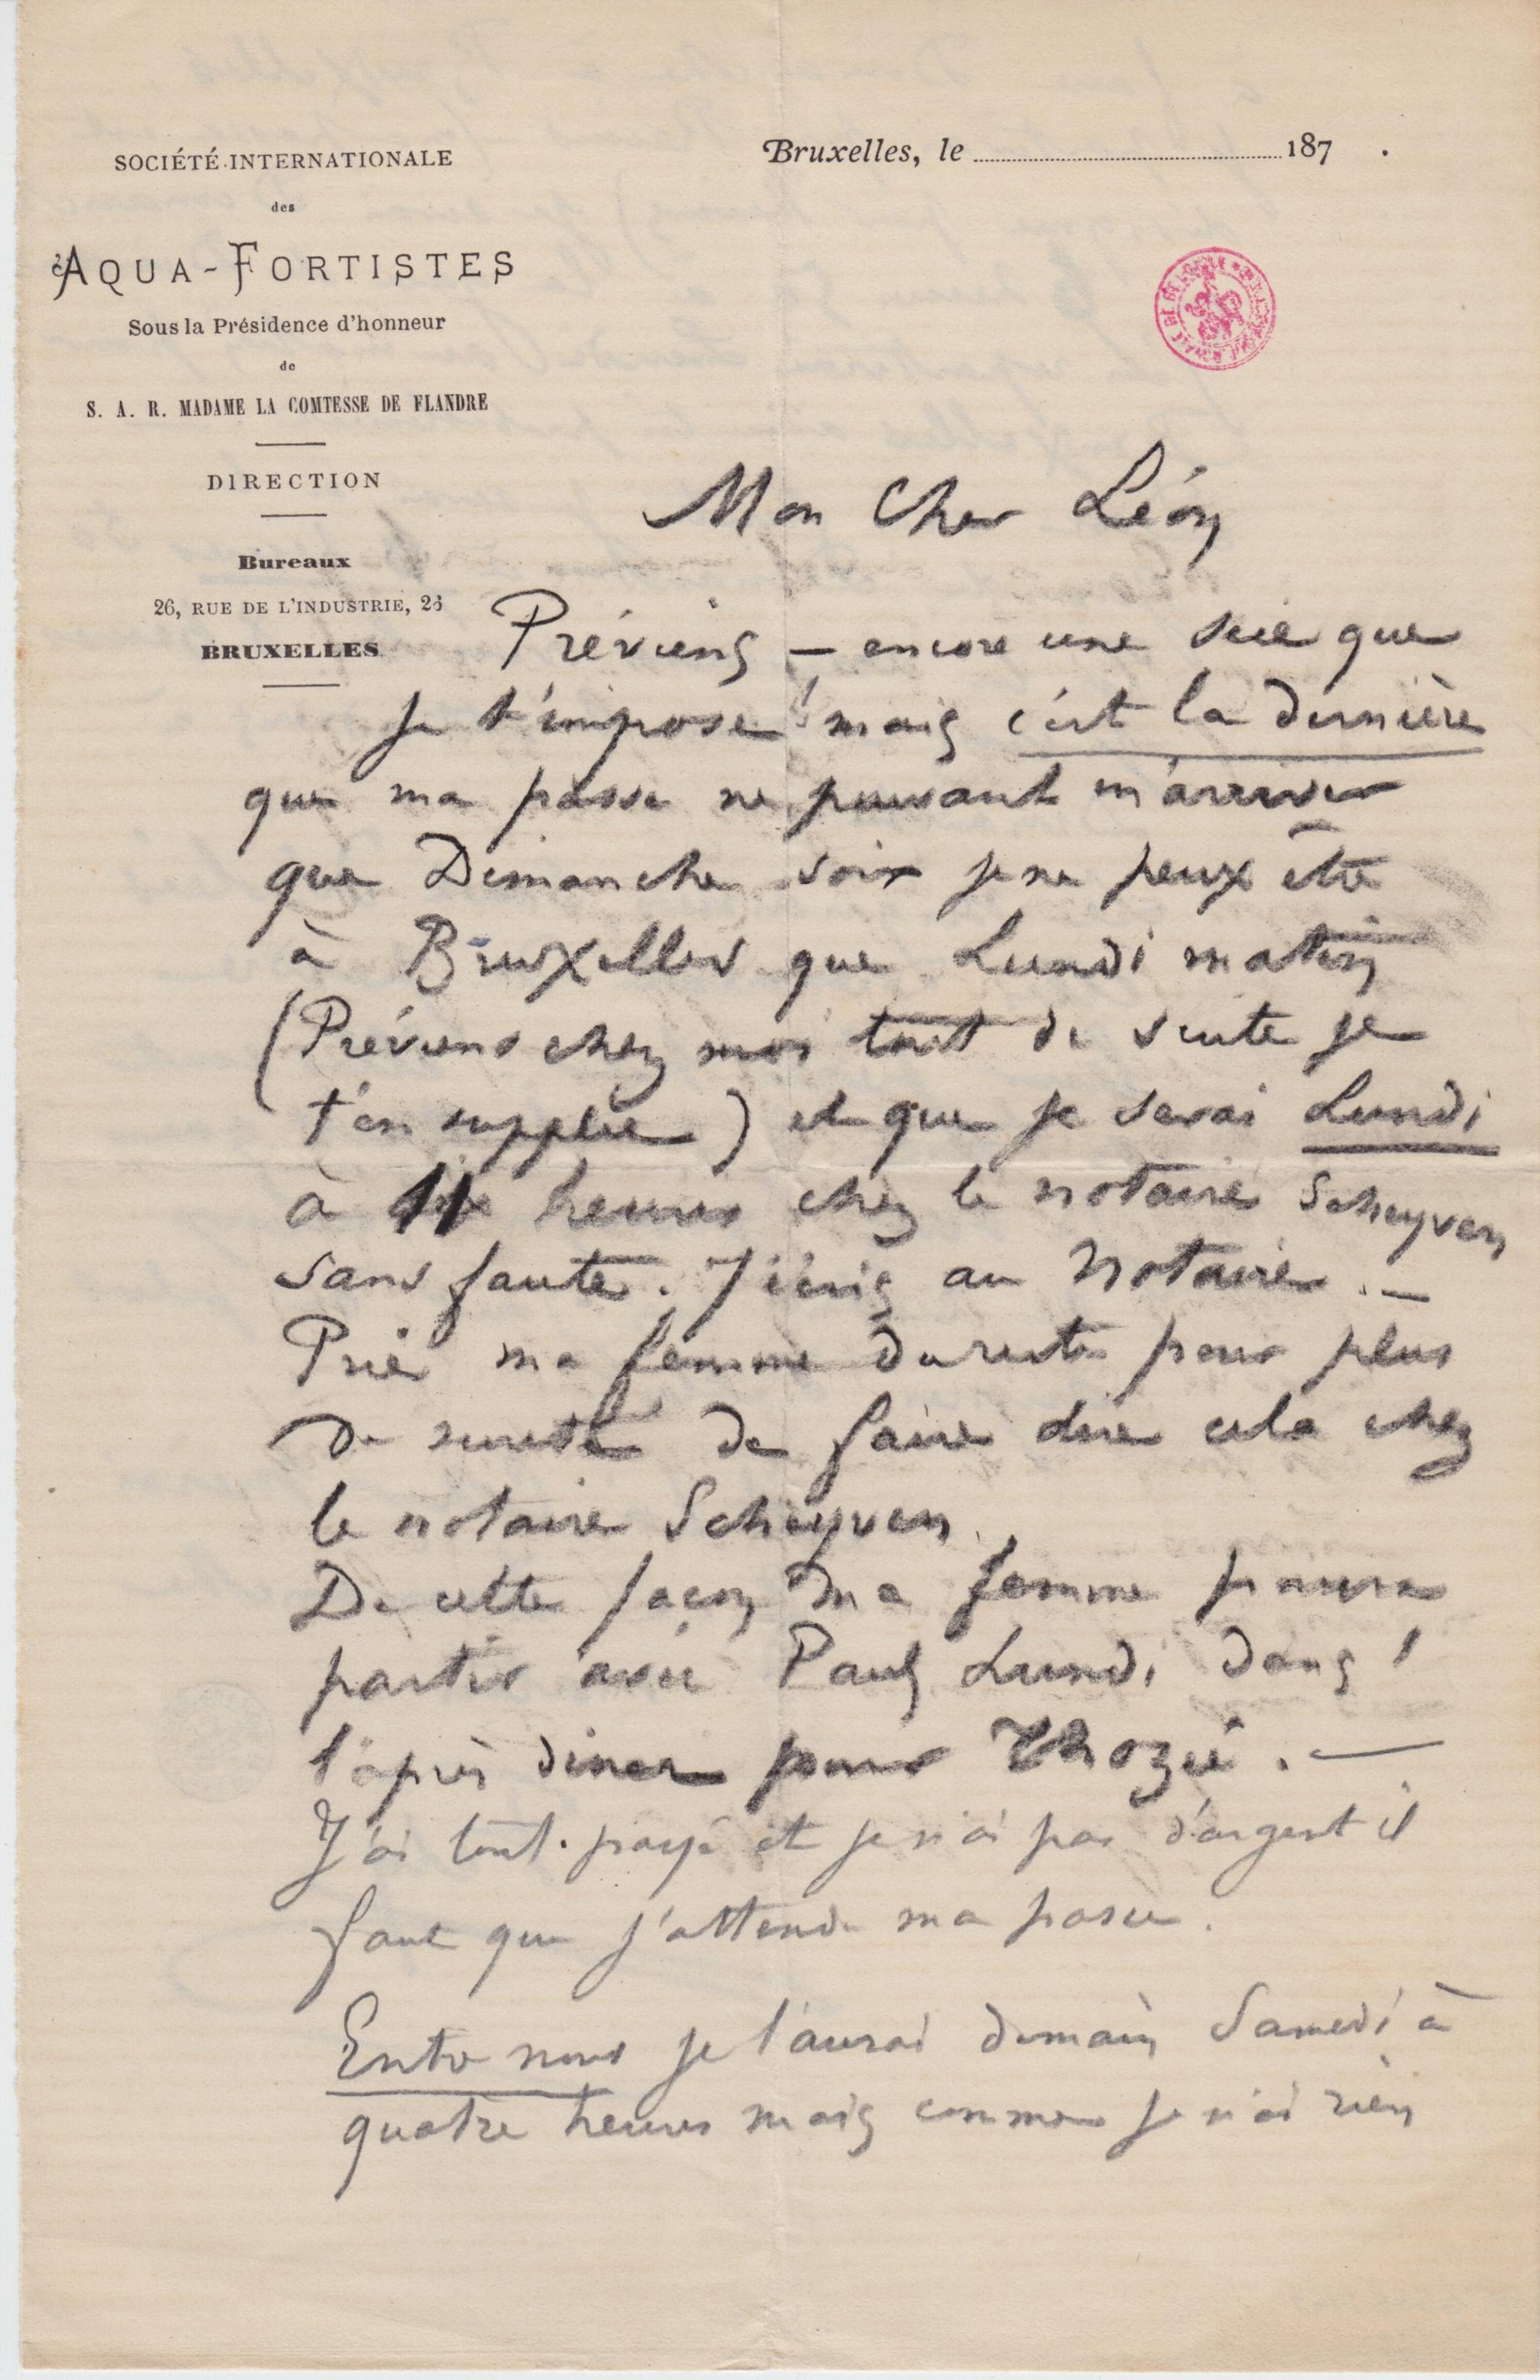 SOCIÉTÉ INTERNATIONALE
des
AQUA-FORTISTES
Sous la Présidence d'honneur
de
S. A. R. MADAME LA COMTESSE DE FLANDRE
DIRECTION
Bureaux
26, RUE DE L'INDUSTRIE, 26
BRUXELLES
Bruxelles, le 187 .
Mon Cher Léon
Préviens – encore une scie que
je t'impose ! mais c'est la dernière
que ma passe ne pouvant m'arriver
que Dimanche soir je ne peux être
à Bruxelles que Lundi matin
(Préviens chez moi tout de suite je
t'en supplie) et que je serai Lundi
à 11 heures chez le notaire Scheyven
sans faute. J'écris au Notaire. –
Prie ma femme du reste pour plus
de sureté de faire dire cela chez
le notaire Scheyven.
De cette façon ma femme pourra
partir avec Paul Lundi dans
l'après diner pour Thozée. —
J'ai tout payé et je n'ai pas d'argent il
faut que j'attende ma passe.
Entre nous je l'aurai demain Samedi à
quatre heures mais comme je n'ai rien